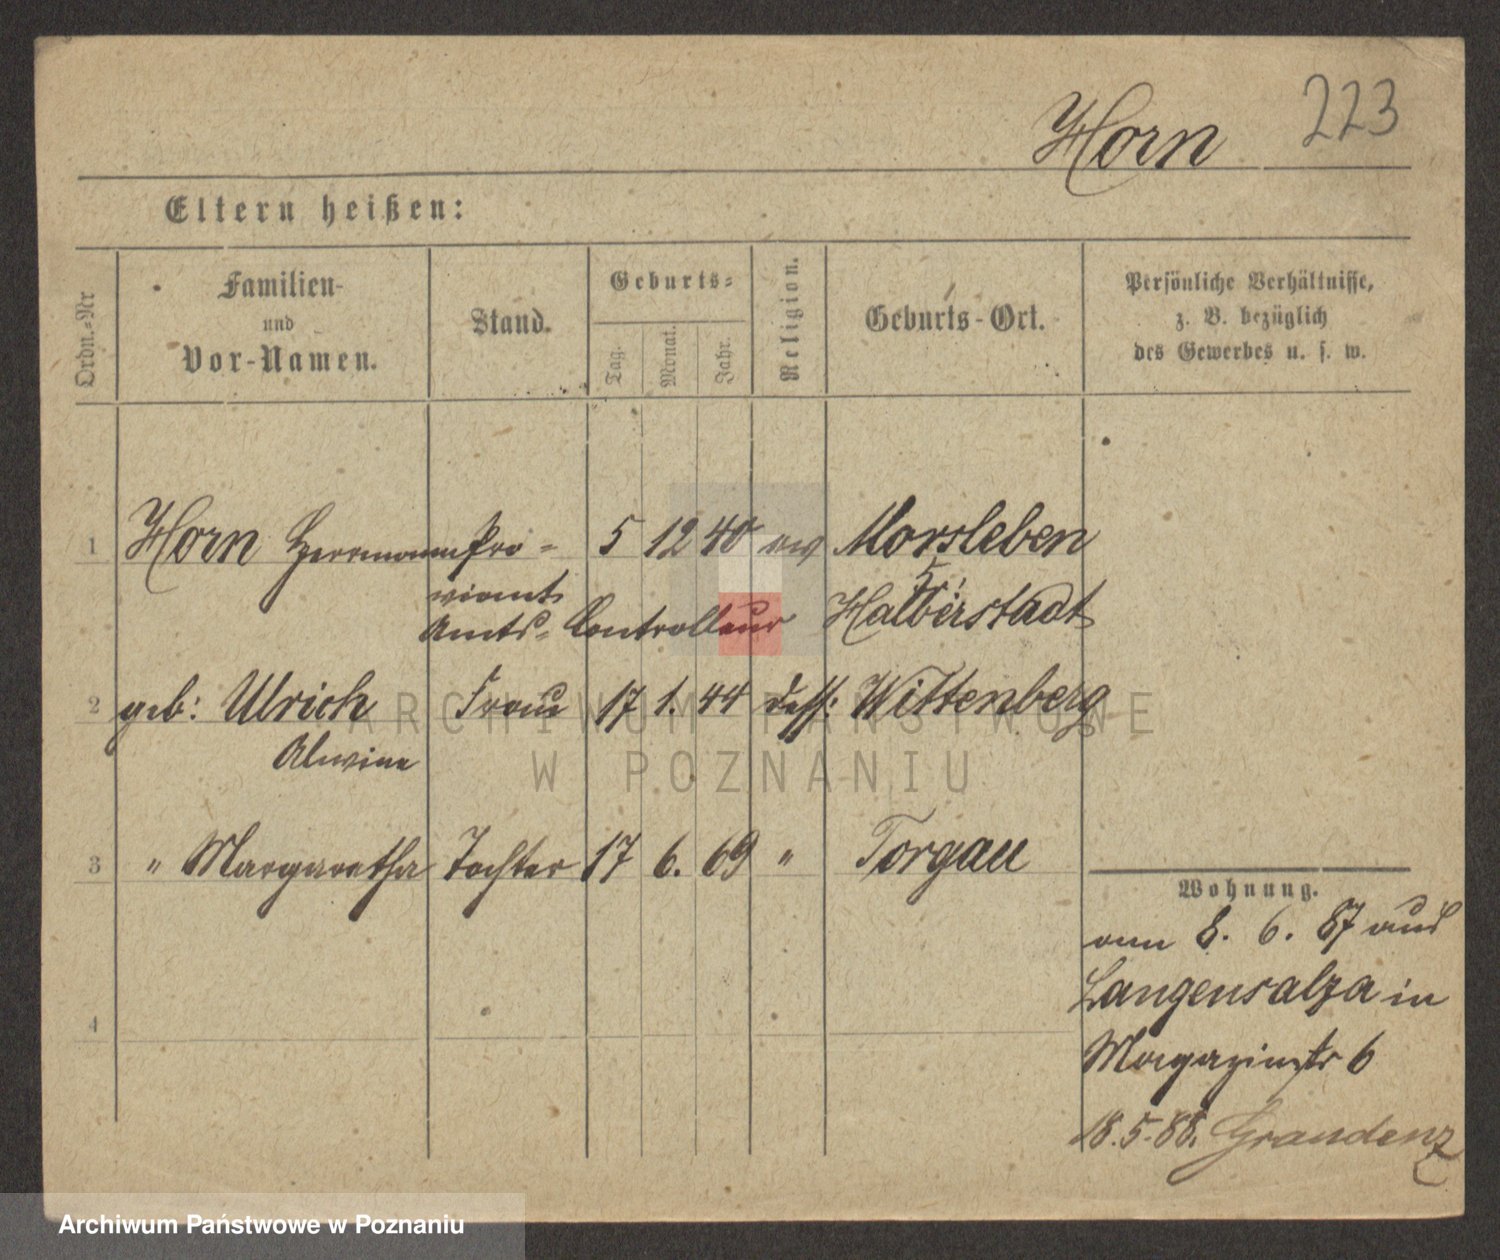 Horn 223
Eltern heißen:
Ordn.-Nr
Familien-
und
Vor-Namen.
Stand.
Geburts-
Tag.
Monat.
Jahr.
Religion.
Geburts-Ort.
Persönliche Verhältnisse,
z. B. bezüglich
des Gewerbes u. s. w.
1 Horn Herrmann Pro- 5 12 40 ev Morsleben
viant
Amts- Controlleur Halberstadt
2 geb: Ulrich Frau 17 1. 44 Wittenberg
Alwine
3 " Margaretha Tochter 17 6. 69 " Torgau
Wohnung.
am 8. 6. 87 aus
Langensalza in
4
Magazinstr 6
18.5.88. Graudenz
ARCHIWUM PAŃSTWOWE
W POZNANIU
Archiwum Państwowe w Poznaniu